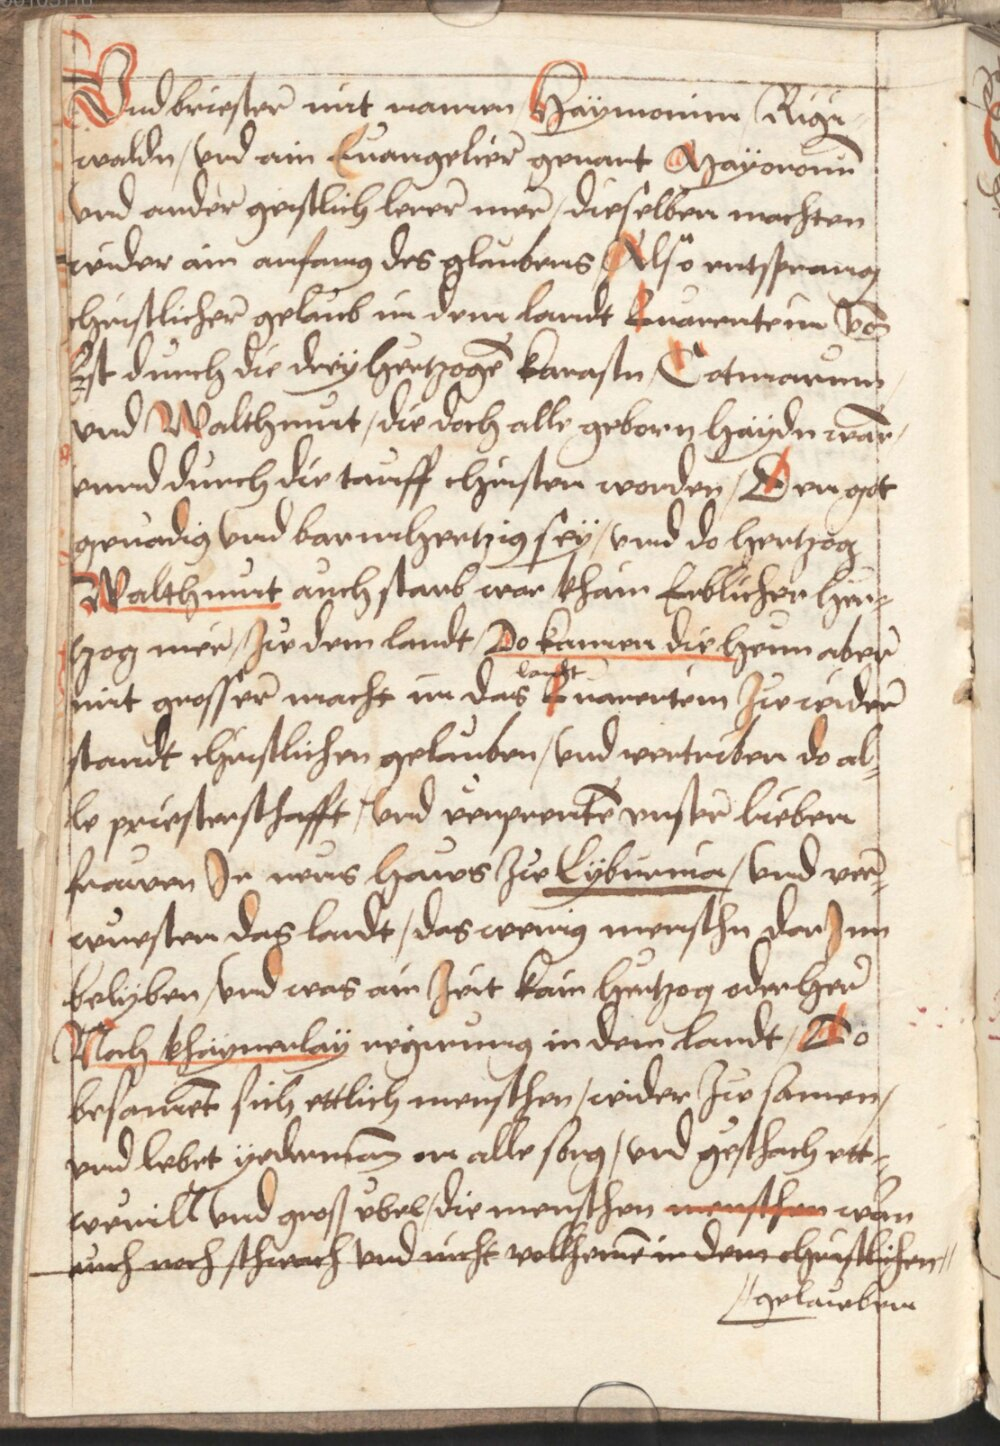 Vnd briester mit namen Haÿmonim / Rigi-
waldn / vnd ain Euangelier genant Mayoronu͂
vnd ander geistlich lerer mer / dieselben machten
wider ain anfanng des glaubens / Also entsprang
christlicher gelaub in dem landt Quarentein von
Erst durch die dreÿ Hertzogn͂ karastn / Cotmarum /
vnd Walthunt / die doch alle geborn haÿdn warn /
vnnd durch die tauff christen worden / Den got
genadig vnd barmhertzig seÿ / vnd do hertzog
Walthunt auch starb war khain Erblicher Her-
tzog mer / Zw dem landt / Do kamen die Heun aber
mit grosser macht in das landt Quarentein Zw wider
standt christlichen gelauben / vnd vertriben do al-
le priesterschafft / vnd verprentn͂ vnser lieben
frawen Ir neus Haws Zw Lyburnia / vnd ver-
wuesten das landt / das wenig menschn dar Inn
belyben / vnd was ain Zeit kain Hertzog oder Her
Noch khaynerlaÿ regirung in dem landt / Do
besamet sich ettlich menschen / wider Zw samen /
vnd lebet yederman͂ on alle sorg / vnd geschach ett-
weuill vnd groß vbel / die menschen menschen warn
auch noch schwach vnd nicht volkhomē in dem christlichen //
// gelaueben